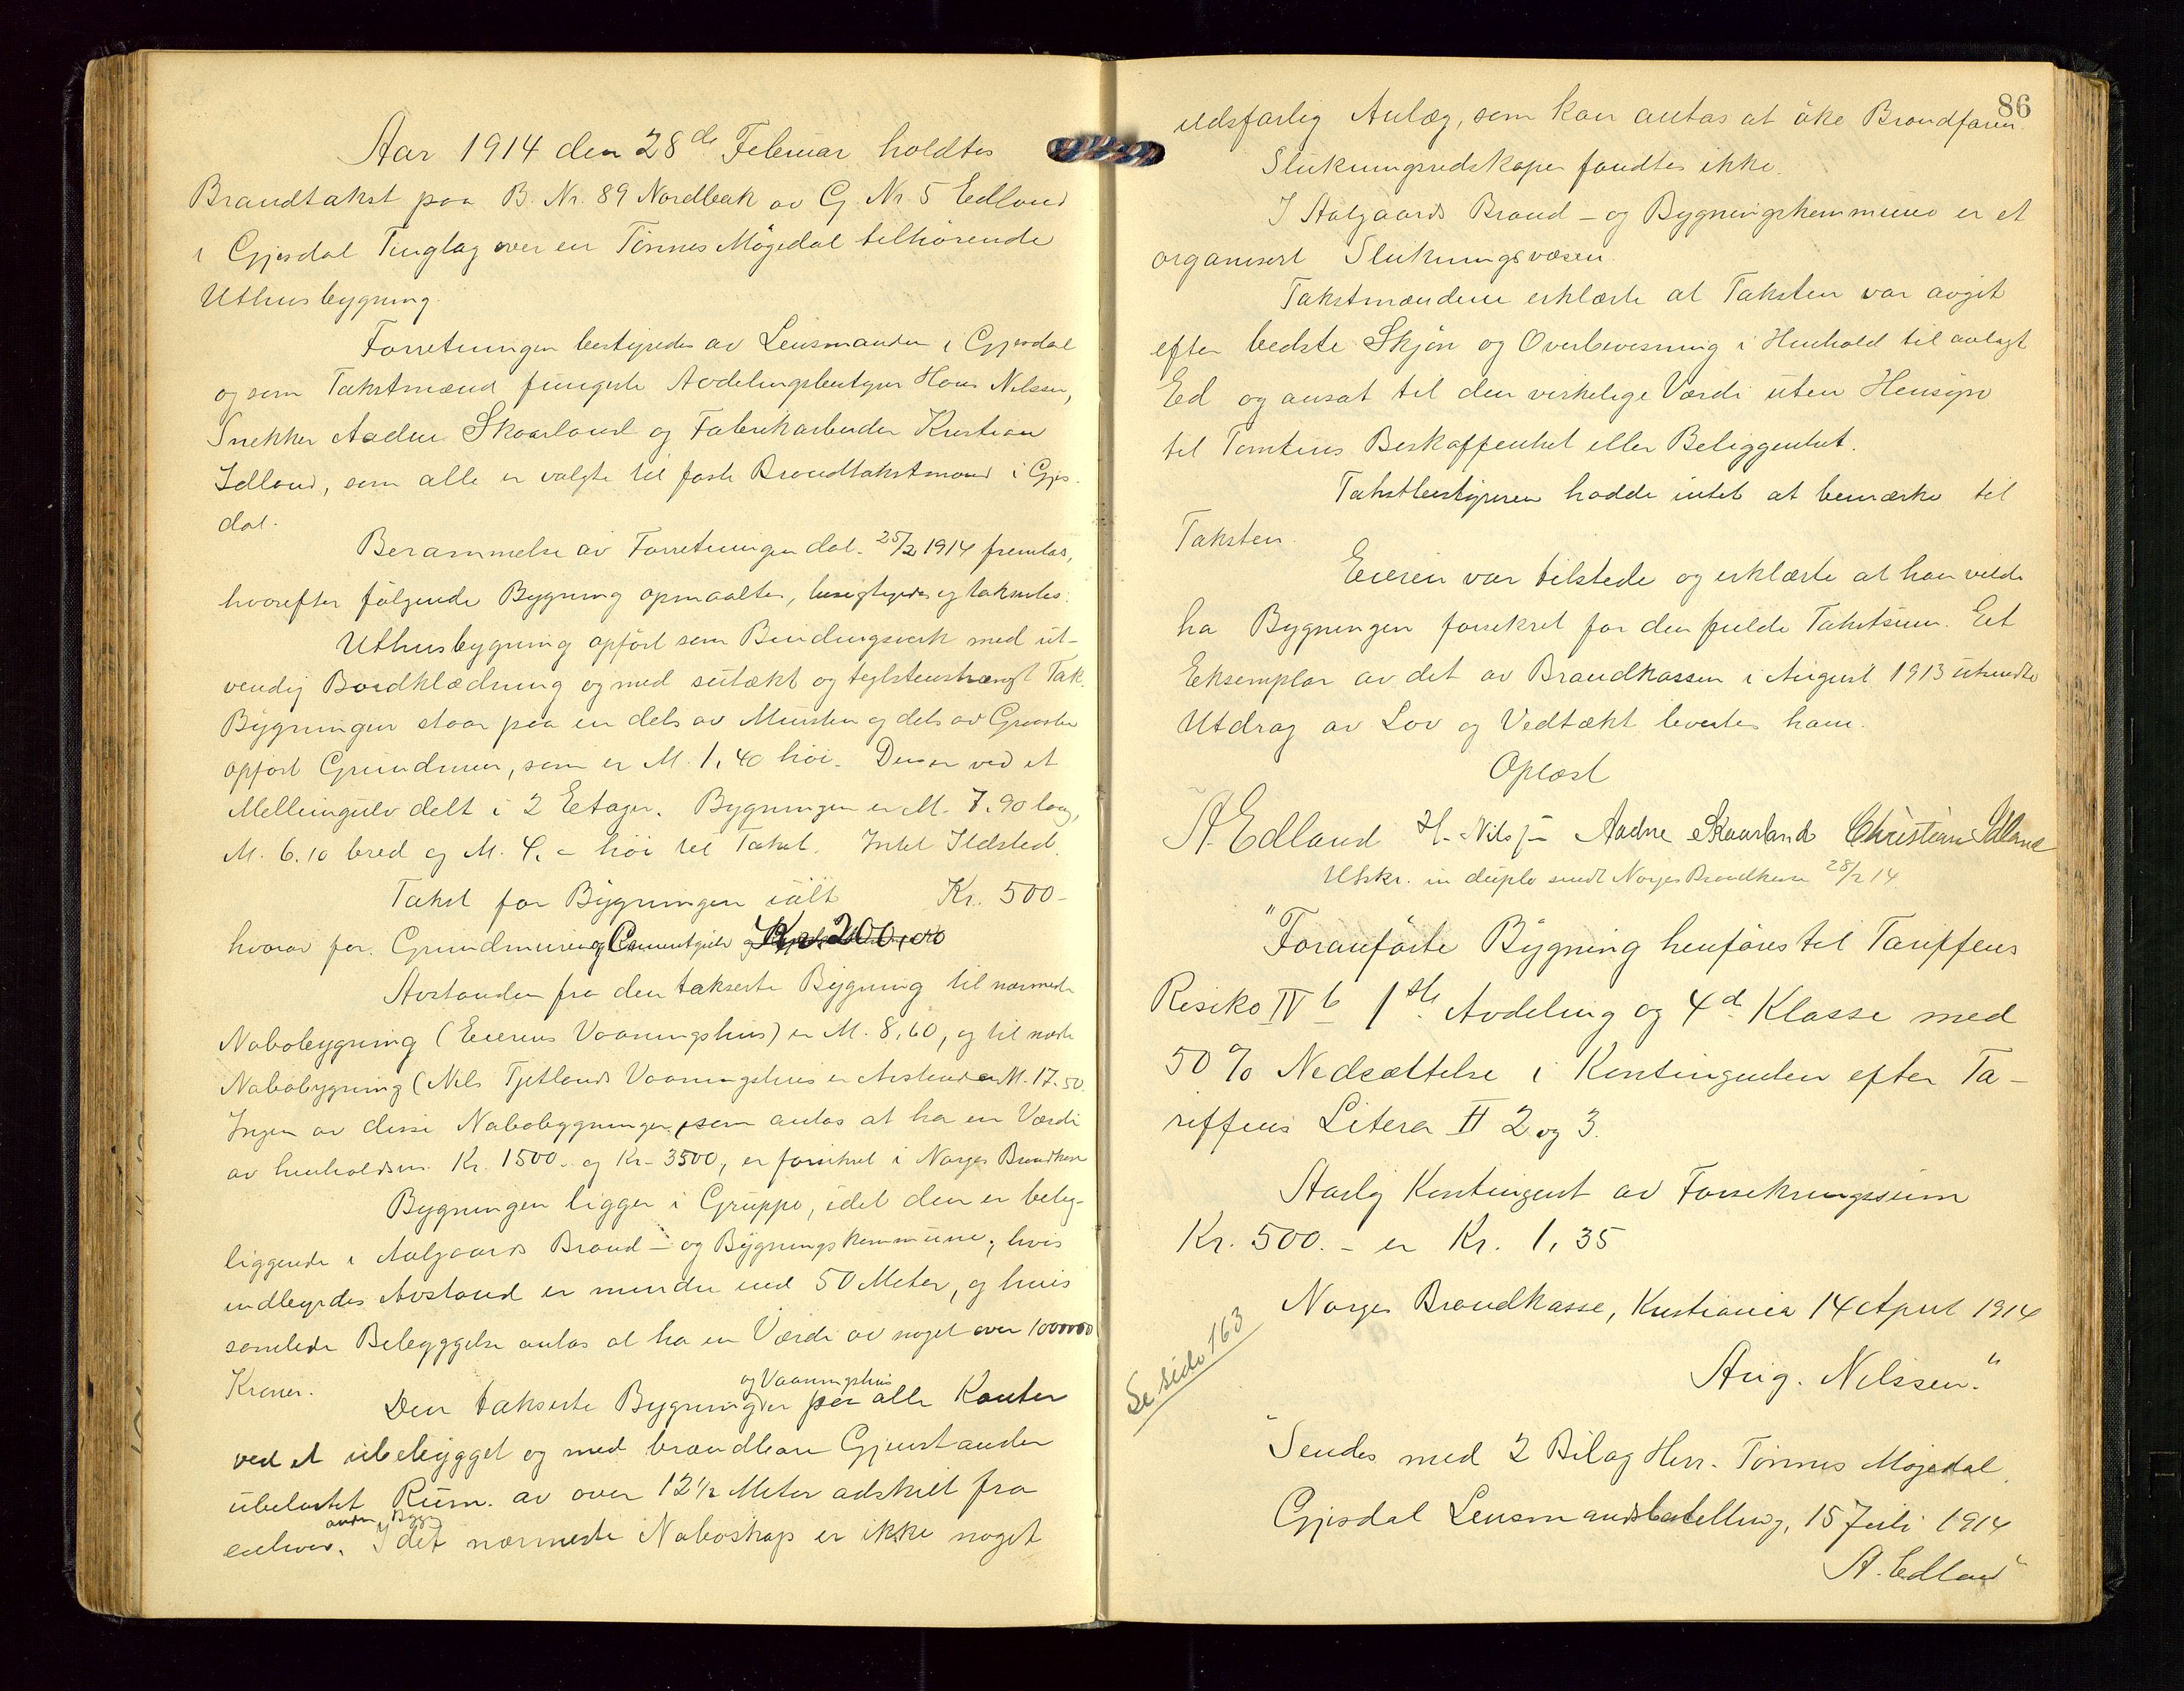 Aar 1914 den 28de Februar holdtes
Brandtakst paa B. Nr. 89 Nordbak av G. Nr 5 Edland
i Gjesdal Tinglag over en Tönnes Mögedal tilhörende
Uthusbygning.
Forretningen bestyredes av Lensmanden i Gjesdal
og som Takstmænd fungerte Avdelingsbestyrer Hans Nilssen,
Snekker Aadne Skaarland og Fabrikarbeider Kristian
Idland, som alle er valgte til faste Brandtakstmænd i Gjes-
dal.
Berammelse av Forretningen dat. 25/2 1914 fremlas,
hvorefter fölgende Bygning opmaaltes, besigtigedes og taksertes:
Uthusbygning opfört som Bindingsverk med ut-
vendig Bordklædning og med sutækt og teglstenshængt Tak.
Bygningen staar paa en dels av Mursten og dels av Graasten
opfört Grundmur, som er M. 1,40 höi. Den er ved et
Mellemgulv delt i 2 Etager. Bygningen er M. 7.90 lang,
M. 6.10 bred og M. 4.- höi til Taket. Intet Ildsted.
Takst for Bygningen ialt Kr. 500-
hvorav for Grundmuren og Cementgulv Kr. 200,00
Avstanden fra den takserte Bygning til nærmeste
Nabobygning (Eierens Vaaningshus) er M. 8,60, og til næste
Nabobygning (Nils Tjetlands Vaaningshus er Avstanden M. 17.50.
Ingen av disse Nabobygninger, som antas at ha en Værdi
av henholdsvis Kr. 1500.- og Kr. 3500, er forsikret i Norges Brandkasse
Bygningen ligger i Gruppe, idet den er beleg-
liggende i Aalgaards Brand- og Bygningskommune, hvis
indbyrdes Avstand er mindre end 50 Meter, og hvis
samlede Bebyggelse antas at ha en Værdi av noget over 1000000
Kroner.
og Vaaningshus
Den takserte Bygning er paa alle Kanter
ved et ubebygget og med brændbare Gjenstander
ubelastet Rum av over 12½ Meter adskilt fra
anden Bygn
enhver. I det nærmeste Naboskap er ikke noget
86
ildsfarlig Anlæg, som kan antas at öke Brandfaren.
Slukningsredskaper fandtes ikke.
I Aalgaards Brand- og Bygningskommune er et
organisert Slukningsvæsen.
Takstmændene erklærte at Taksten var avgit
efter bedste Skjön og Overbevisning i Henhold til avlagt
Ed og ansat til den virkelige Værdi uten Hensyn
til Tomtens Beskaffenhet eller Beliggenhet.
Takstbestyreren hadde intet at bemærke til
Taksten.
Eieren var tilstede og erklærte at han vilde
ha Bygningen forsikret for den fulde Takstsum. Et
Eksemplar av det av Brandkassen i August 1913 utsendte
Utdrag av Lov og Vedtækt levertes ham.
Oplæst
A. Edland H. Nilsen Aadne Skaarland Christian Idland
Utskr. in duplo sendt Norges Brandkasse 28/2 14
"Foranförte Bygning henföres til Tariffens
Risiko IV b 1ste Avdeling og 4de Klasse med
50 % Nedsættelse i Kontingenten efter Ta-
riffens Litera H 2 og 3.
Aarlig Kontingent av Forsikringssum
Kr. 500.- er Kr. 1,35
Norges Brandkasse, Kristiania 14 April 1914
Aug. Nilssen."
Se side 163
"Sendes med 2 Bilag Herr. Tönnes Mögedal.
Gjesdal Lensmandsbestilling, 15 Juli 1914
A. Edland"